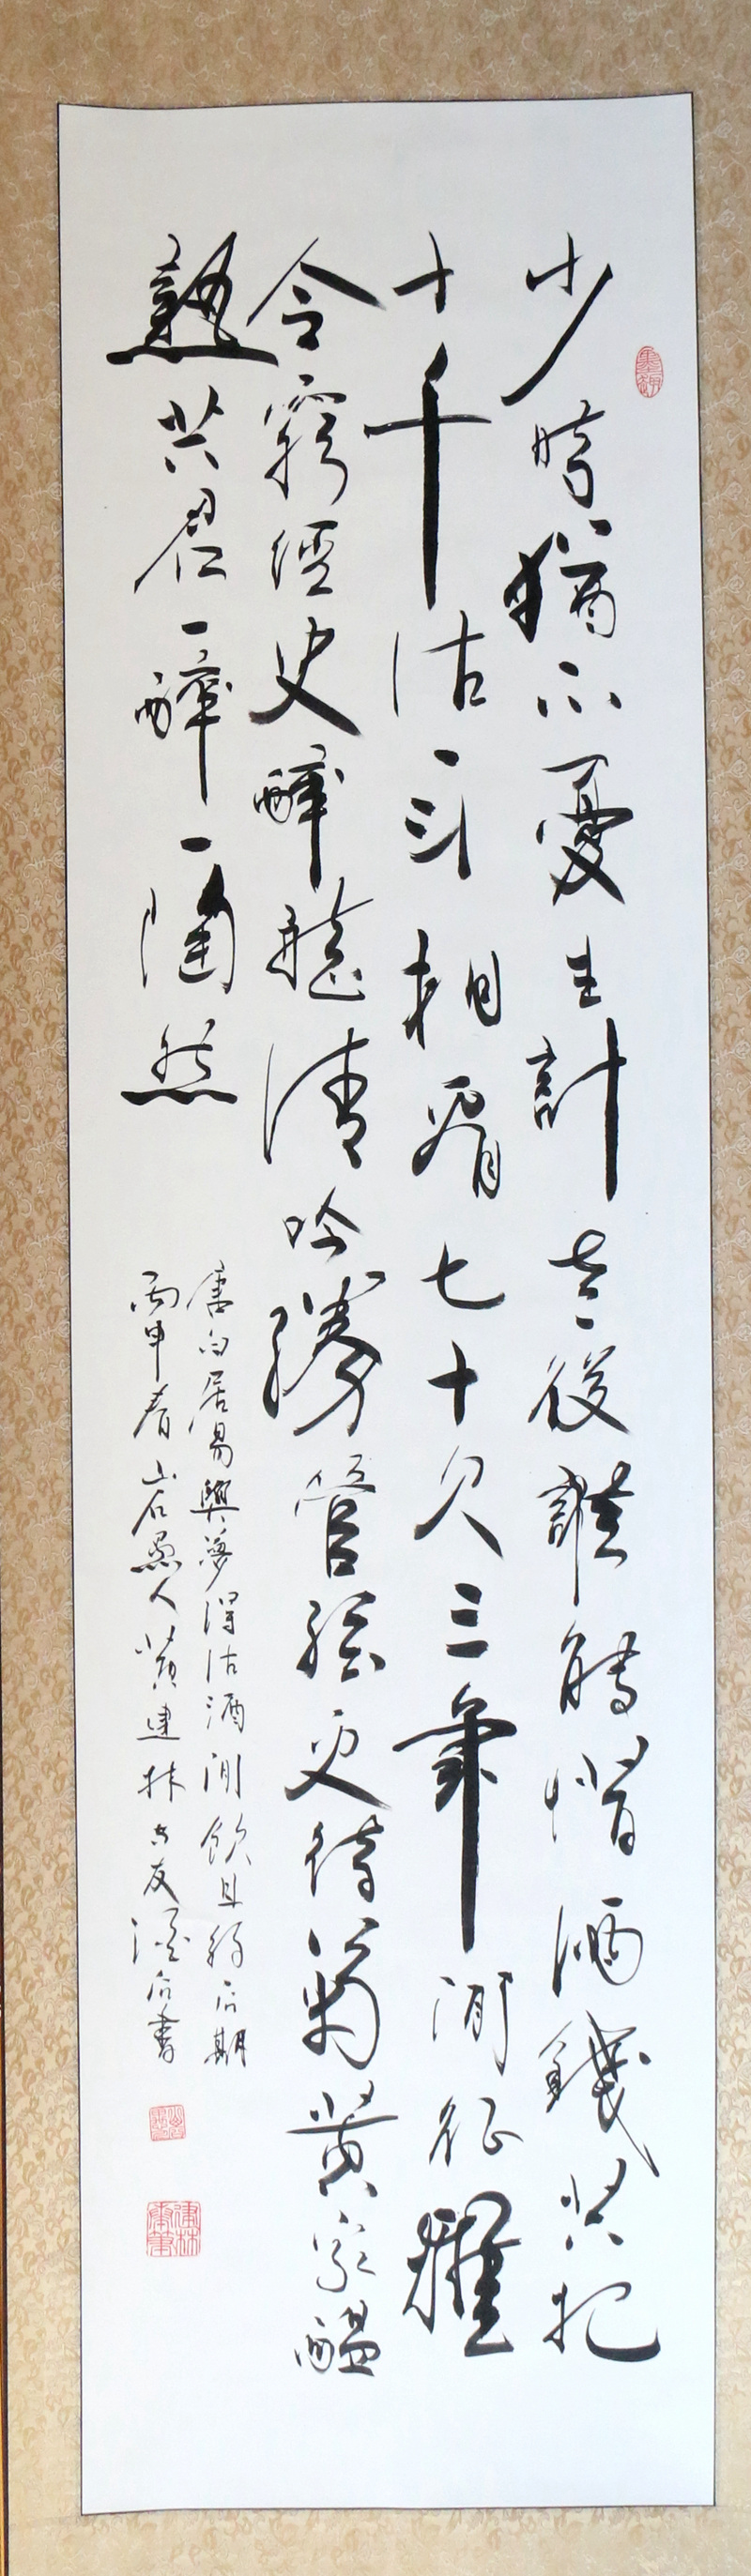 少時猶不憂生計老後誰能惜酒錢共把
十千沽一斗相看七十欠三年閒征雅
令窮經史醉聽清吟勝管絃更待菊黃家醞
熟共君一醉一陶然
唐白居易與夢得沽酒閒飲且約后期
丙申春岩愚人黃建林